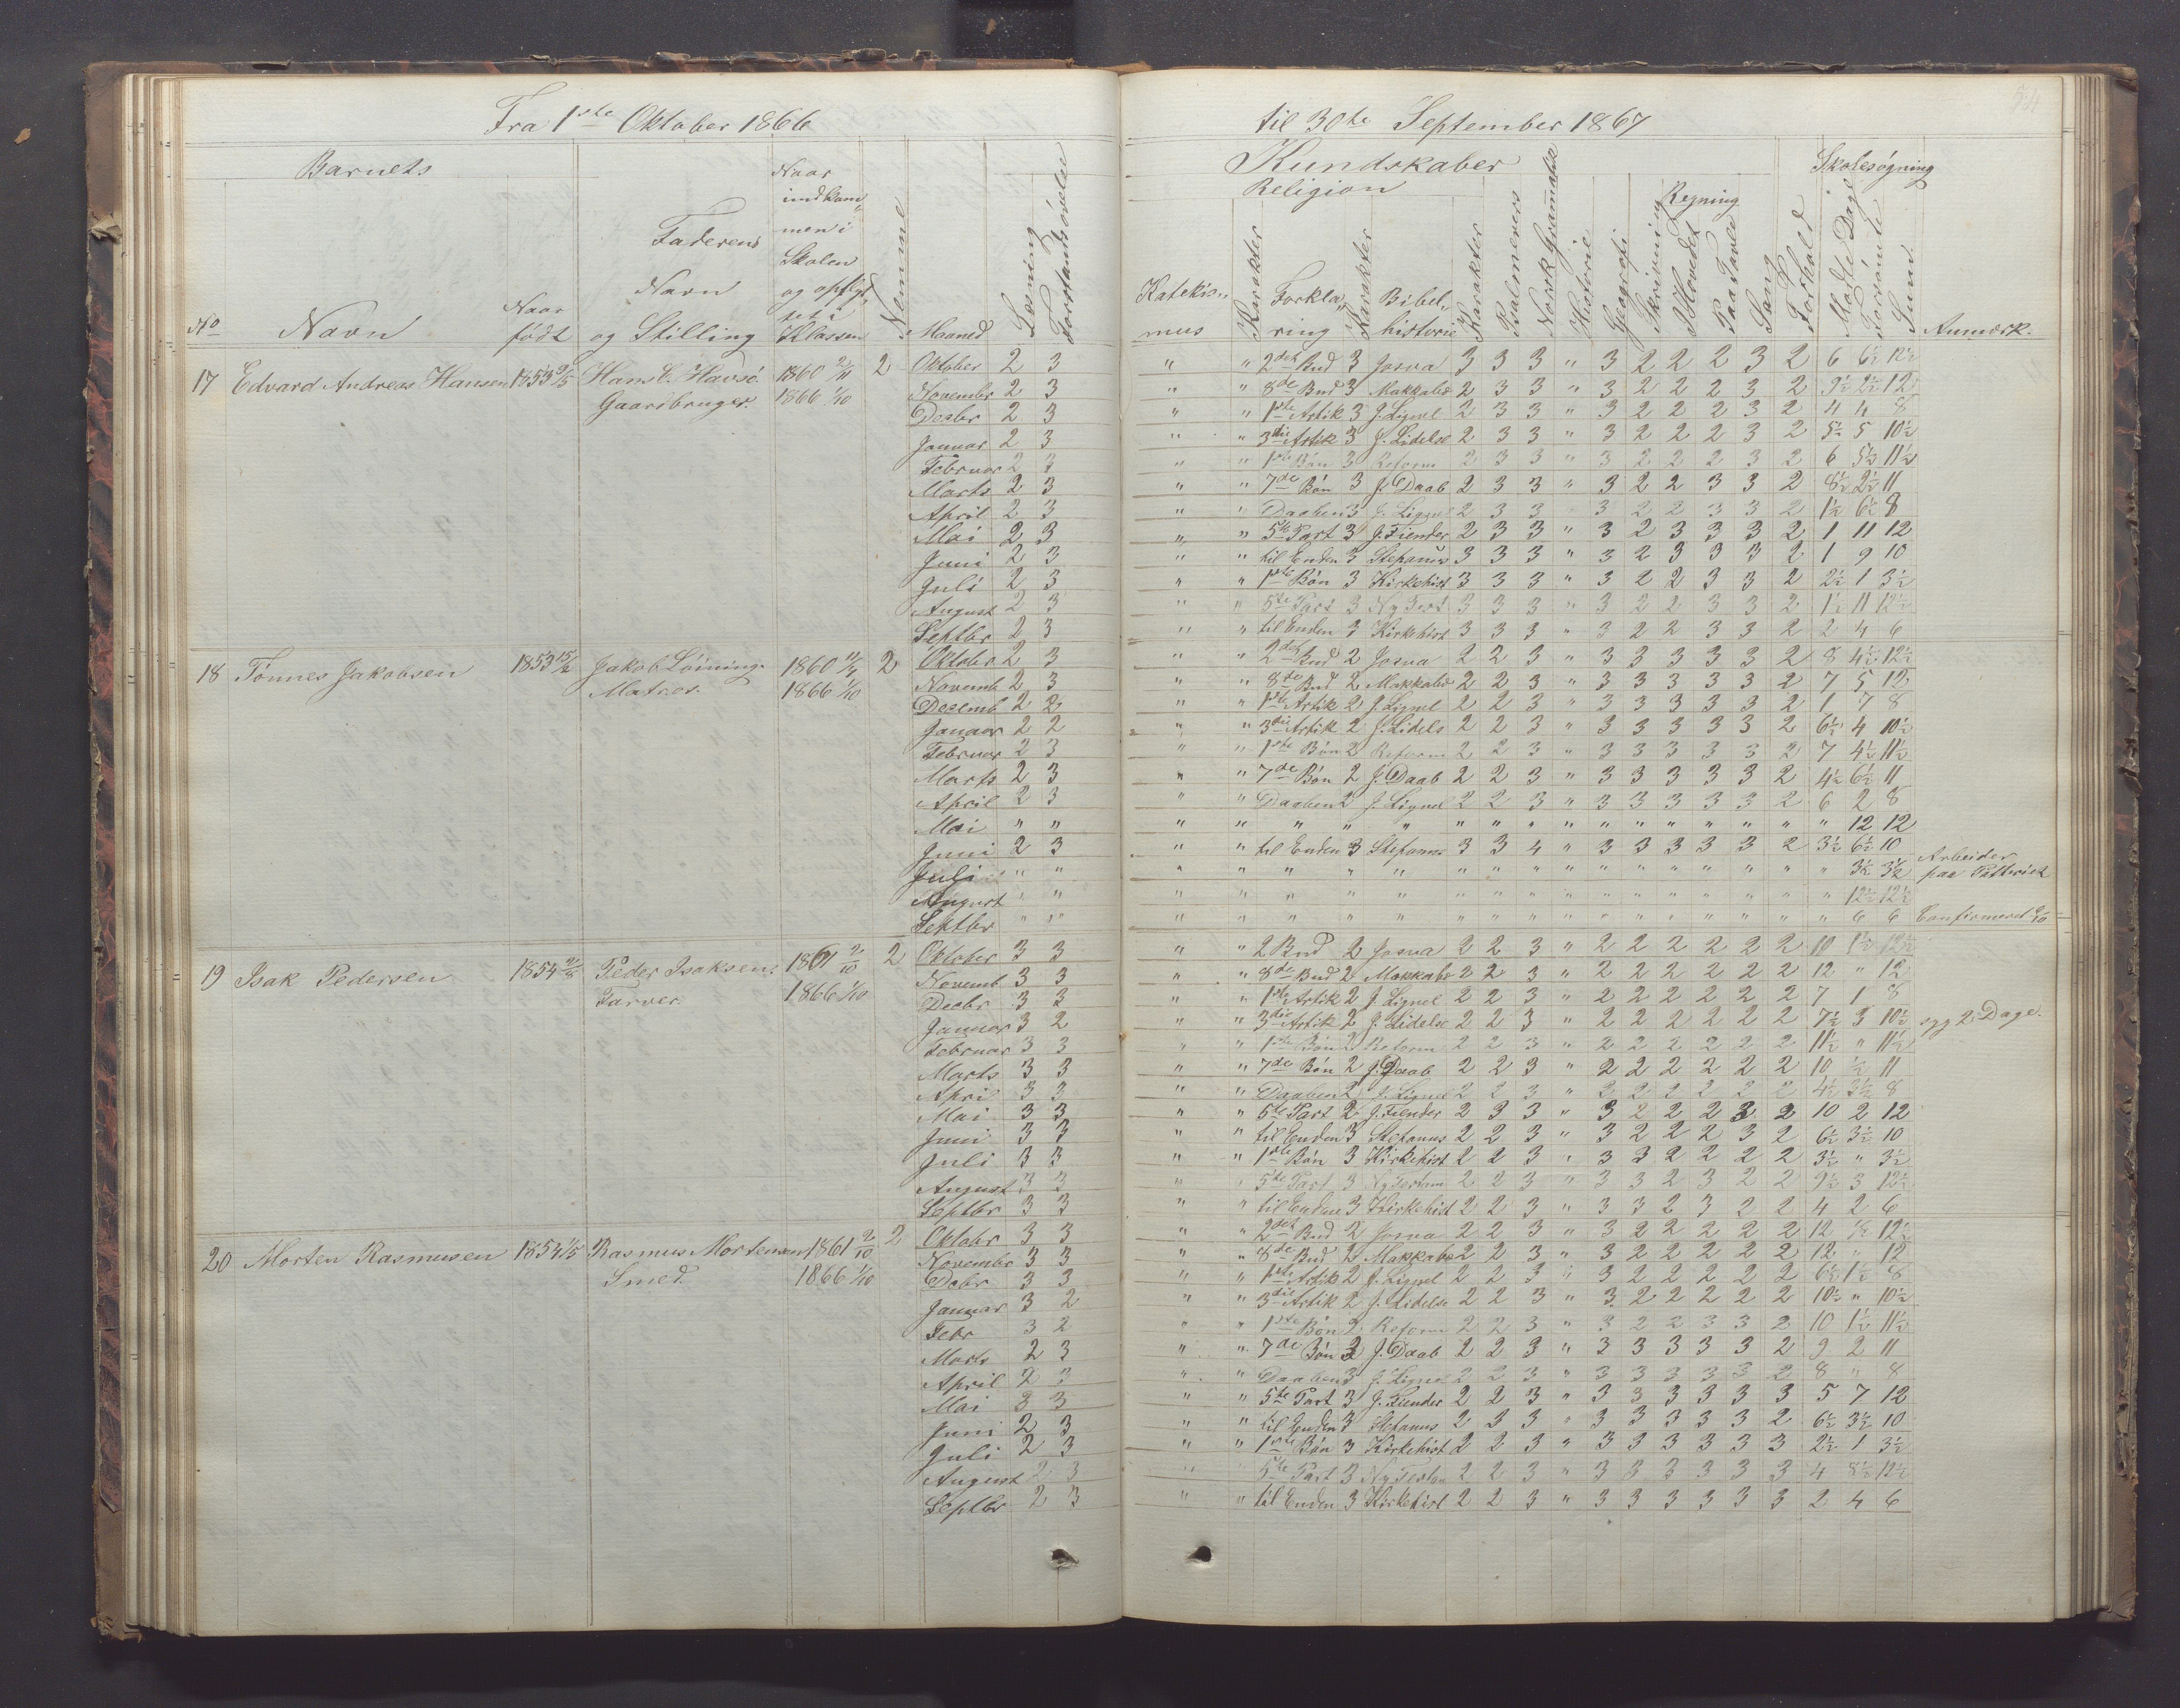 Fra 1ste Oktober 1866 til 30te September 1867
Barnets
Kundskaber
Skolesøgning
Religion
Regning
No
Navn
Naar født
Faderens Navn og Stilling
Naar indkommen i Skolen og opflyttet i Klassen
Nemme
Maaned
Læsning
Forstandsøvelse
Katekismus
Karakter
Forklaring
Karakter
Bibelhistorie
Karakter
Psalmevers
Norsk Gramatik
Historie
Geografi
Skrivning
I Hovedet
Paa Tavle
Sang
Forhold
Mødte Dage
Forsømte
Sum
Anmærk.
17 Edvard Andreas Hansen 1853 9/5 Hans C. Havsø Gaardbruger. 1860 2/11 1866 1/10 2
Oktober 2 3 " " 2det Bud 3 Josva 3 3 3 " 3 2 2 2 3 2 6 6½ 12½
Novembr 2 3 " " 8de Bud 3 Makkabæ 2 3 3 " 3 2 2 2 3 2 9½ 2½ 12
Decbr 2 3 " " 1ste Artik 3 J. Lignel 2 3 3 " 3 2 2 2 3 2 4 4 8
Januar 2 3 " " 3die Artik 3 J. Lidelse 2 3 3 " 3 2 2 2 3 2 5½ 5 10½
Februar 2 3 " " 1ste Bøn 3 Reform 2 3 3 " 3 2 2 2 3 2 6 5½ 11½
Marts 2 3 " " 7de Bøn 3 J. Daab 2 3 3 " 3 2 2 3 3 2 8½ 2½ 11
April 2 3 " " Daaben 3 J. Lignel 2 3 3 " 3 2 2 3 3 2 1½ 6½ 8
Mai 2 3 " " 5te Part 3 J. Fiender 2 3 3 " 3 2 3 3 3 2 1 11 12
Juni 2 3 " " til Enden 3 Stefanus 3 3 3 " 3 2 3 3 3 2 1 9 10
Juli 2 3 " " 1ste Bøn 3 Kirkehist 3 3 3 " 3 2 2 3 3 2 2½ 1 3½
August 2 3 " " 5te Part 3 Ny Test. 3 3 3 " 3 2 2 3 3 2 1½ 11 12½
Septbr 2 3 " " til Enden 3 Kirkehist 3 3 3 " 3 2 2 3 3 2 2 4 6
18 Tønnes Jakobsen 1853 15/12 Jakob Løining. Matros. 1860 11/4 1866 1/10 2
Oktober 2 3 " " 2det Bud 2 Josva 2 2 3 " 3 3 3 3 3 2 8 4½ 12½
Novemb 2 3 " " 8de Bud 2 Makkabæ 2 2 3 " 3 3 3 3 3 2 7 5 12
Decemb 2 2 " " 1ste Artik 2 J. Lignel 2 2 3 " 3 3 3 3 3 2 1 7 8
Januar 2 2 " " 3die Artik 2 J. Lidels 2 2 3 " 3 3 3 3 3 2 6½ 4 10½
Februar 2 3 " " 1ste Bøn 2 Reform 2 2 3 " 3 3 3 3 3 2 7 4½ 11½
Marts 2 3 " " 7de Bøn 2 J. Daab 2 2 3 " 3 3 3 3 3 2 4½ 6½ 11
April 2 3 " " Daaben 2 J. Lignel 2 2 3 " 3 3 3 3 3 2 6 2 8
Mai " " " " " " " " " " " " " " " " " " 12 12
Juni 2 3 " " til Enden 3 Stefanus 3 3 4 " 3 3 3 3 3 2 3½ 6½ 10
Juli " " " " " " " " " " " " " " " " " " 3½ 3½ Arbeider paa
August " " " " " " " " " " " " " " " " " " 12½ 12½
Septbr " " " " " " " " " " " " " " " " " " 6 6 Confirmeret
19 Isak Pedersen 1854 2/8 Peder Isaksen Farver. 1861 2/10 1866 1/10 2
Oktober 3 3 " " 2 Bud 2 Josva 2 2 3 " 2 2 2 2 2 2 10 1½ 12½
Novemb 3 3 " " 8de Bud 2 Makkabæ 2 2 3 " 2 2 2 2 2 2 12 " 12
Decbr 3 3 " " 1ste Artik 2 J. Lignel 2 2 3 " 2 2 2 2 2 2 7 1 8
Januar 3 2 " " 3die Artik 2 J. Lidelse 2 2 3 " 2 2 2 2 2 2 7½ 3 10½ syg 2 Dage.
Februar 3 3 " " 1ste Bøn 2 Reform 2 2 3 " 2 2 2 2 2 2 11½ " 11½
Marts 3 3 " " 7de Bøn 2 J. Daab 2 2 3 " 2 2 2 2 2 2 10 ½ 11
April 3 3 " " Daaben 2 J. Lignel 2 2 3 " 2 2 2 2 2 2 4½ 3½ 8
Mai 3 3 " " 5te Part 2 J. Fiender 2 3 3 " 3 2 2 2 3 2 10 2 12
Juni 3 3 " " til Enden 3 Stefanus 2 2 3 " 3 2 2 2 3 2 6½ 3½ 10
Juli 3 3 " " 1ste Bøn 3 Kirkehist 2 2 3 " 3 3 2 2 2 2 3½ " 3½
August 3 3 " " 5te Part 3 Ny Testam 2 2 3 " 3 3 2 3 2 2 9½ 3 12½
Septbr 3 3 " " til Enden 3 Kirkehist 2 2 3 " 3 3 2 3 2 2 4 2 6
20 Morten Rasmusen 1854 1/5 Rasmus Mortensen Smed. 1861 2/10 1866 1/10 2
Oktobr 3 3 " " 2det Bud 2 Josva 2 2 3 " 3 2 2 2 2 2 12 ½ 12½
Novembr 3 3 " " 8de Bud 2 Makkabæ 2 2 3 " 3 2 2 2 2 2 12 " 12
Debr 3 3 " " 1ste Artik 2 J. Lignel 2 2 3 " 3 2 2 2 2 2 6½ 1½ 8
Januar 3 2 " " 3die Artik 2 J. Lidelse 2 2 3 " 3 2 2 2 2 2 10½ " 10½
Febr 3 2 " " 1ste Bøn 2 Reform 2 2 3 " 3 2 2 3 3 2 10 1½ 11½
Marts 2 3 " " 7de Bøn 2 J. Daab 2 2 3 " 3 3 3 3 3 2 9 2 11
April 2 3 " " Daaben 3 J. Lignel 2 2 3 " 3 3 3 3 3 2 8 " 8
Mai 3 3 " " 5te Part 3 J. Fiender 2 2 3 " 3 3 3 3 3 3 5 7 12
Juni 2 3 " " til Enden 3 Stefanus 2 3 3 " 3 3 3 3 3 2 6½ 3½ 10
Juli 2 3 " " 1ste Bøn 3 Kirkehist 2 2 3 " 3 3 3 3 3 3 2½ 1 3½
August 2 3 " " 5te Part 3 Ny Testam 2 2 3 " 3 3 3 3 3 3 4 8½ 12½
Septbr 2 3 " " til Enden 3 Kirkehist 2 2 3 " 3 3 3 3 3 3 2 4 6